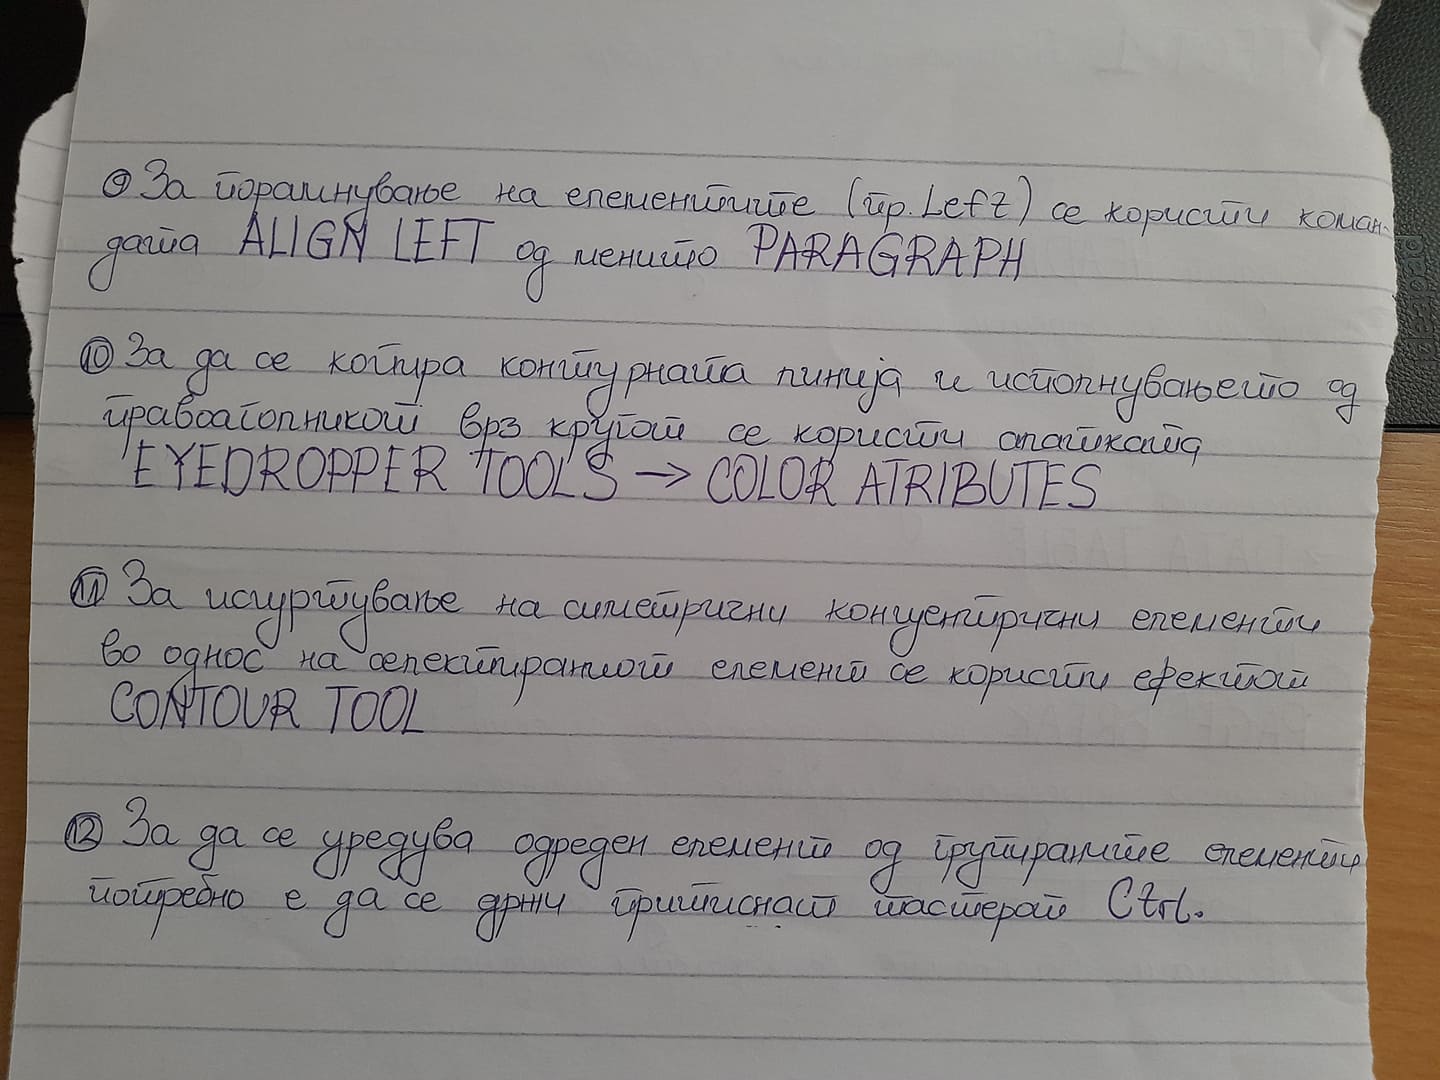 ⑨ За порамнување на елементите (пр. Left) се користи коман-
дата ALIGN LEFT од менито PARAGRAPH
⑩ За да се копира контурната линија и исполнувањето од
правоаголникот врз кругот се користи алатката
EYEDROPPER TOOLS → COLOR ATRIBUTES
⑪ За исцртување на симетрични концентрични елементи
во однос на селектираниот елемент се користи ефектот
CONTOUR TOOL
⑫ За да се уредува одреден елемент од групираните елементи
потребно е да се држи притиснат тастерот Ctrl.